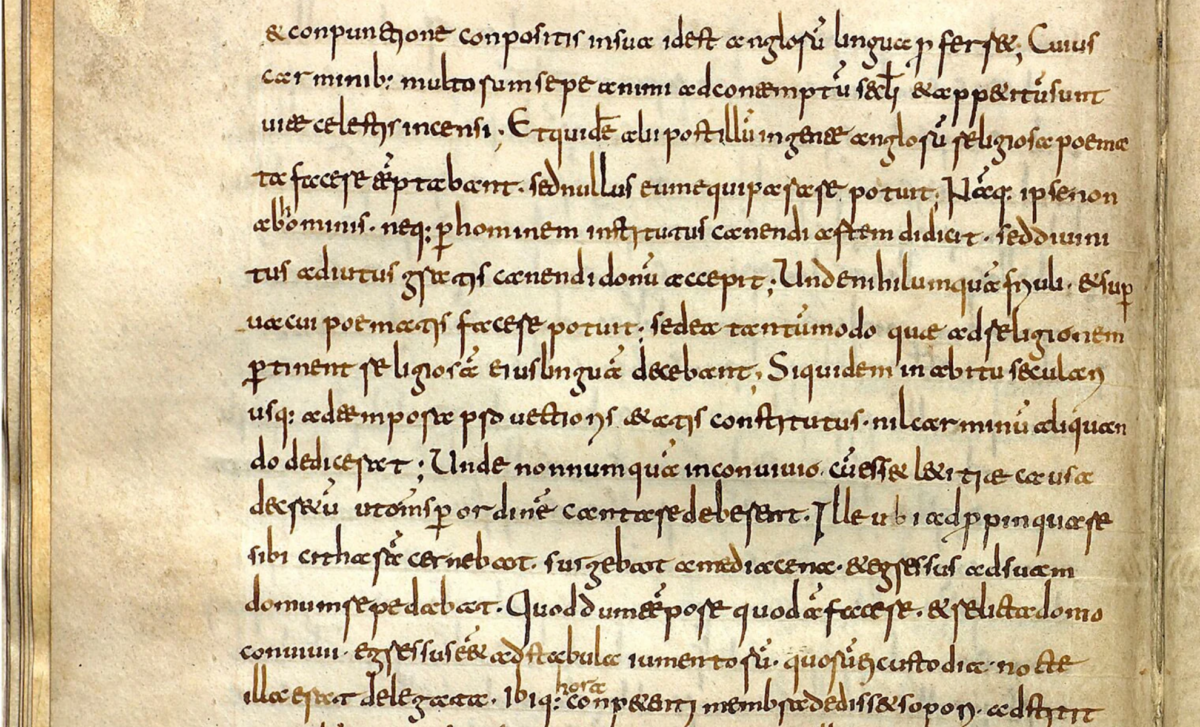 & conpunctione conpositis in sua id est anglorū lingua ꝑferr&; Cuius
carminib: multorum sepe animi ad contemptū sęcłi & app&itū sunt
uitae celestis incensi; Et quidē alii post illū in gente anglorū religiosa poema
ta facere tēptabant. sed nullus eum equiparare potuit; Nāq: ipse non
ab hominis. neq: ꝑ hominem institutus canendi artem didicit. sed diuini
tus adiutus gratis canendi donū accepit; Unde nihil umquā friuoli. & suꝑ
uacui poematis facere potuit; sed ea tantūmodo quae ad religionem
ꝑtinent religiosā eius linguā decebant; Siquidem in abitu seculari
usq: ad tempora prouectioris &atis constitutus. nil carminū aliquan
do dedicerat; Unde nonnumquā in conuiuio. cū ess& l&itiae causa
decr&ū ut om̄s ꝑ ordinē cantare deberent. Ille ubi adpropinquare
sibi citharā cernebat. surgebat a media cena. & egressus ad suam
domum repedabat. Quod dum tēpore quodā facer&. & relicta domo
conuiuii. egressus ēē& ad stabula iumentorū. quorū ei custodia nocte
illa erat delegata. Ibiq: hora conp&enti membra dediss& sopori. adstitit